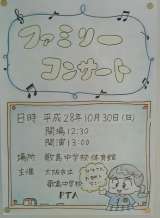 ファミリー
コンサート
日時 平成28年10月30日(日)
開場 12:30
開演 13:00
場所 歌島中学校 体育館
主催 大阪市立
歌島中学校
PTA